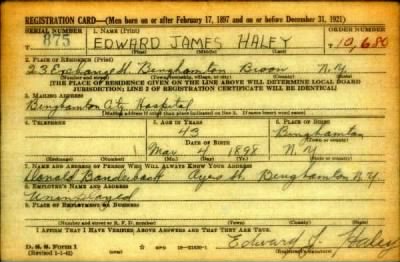 REGISTRATION CARD—(Men born on or after February 17, 1897 and on or before December 31, 1921)
SERIAL NUMBER 1. NAME (Print) ORDER NUMBER
875 EDWARD JAMES HALEY 10,680
2. PLACE OF RESIDENCE (Print)
23 Exchange St Binghamton Broom N.Y
(Number and street) (Town, township, village, or city) (County) (State)
[THE PLACE OF RESIDENCE GIVEN ON THE LINE ABOVE WILL DETERMINE LOCAL BOARD
JURISDICTION; LINE 2 OF REGISTRATION CERTIFICATE WILL BE IDENTICAL]
3. MAILING ADDRESS
Binghamton City Hospital
[Mailing address if other than place indicated on line 2. If same insert word same]
4. TELEPHONE 5. AGE IN YEARS 6. PLACE OF BIRTH
43 Binghamton
DATE OF BIRTH (Town or county)
Mar 4 1898 N.Y.
(Exchange) (Number) (Mo.) (Day) (Yr.) (State or country)
7. NAME AND ADDRESS OF PERSON WHO WILL ALWAYS KNOW YOUR ADDRESS
Donald St. Binghamton N.Y.
8. EMPLOYER'S NAME AND ADDRESS
Unemployed
9. PLACE OF EMPLOYMENT OR BUSINESS
(Number and street or R. F. D. number) (Town) (County) (State)
I AFFIRM THAT I HAVE VERIFIED ABOVE ANSWERS AND THAT THEY ARE TRUE.
D. S. S. Form 1
(Revised 1-1-42) Edward J. Haley